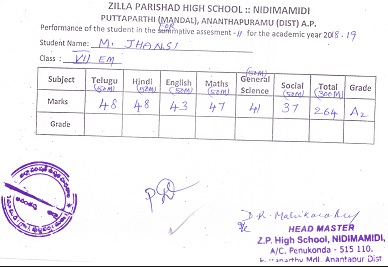 ZILLA PARISHAD HIGH SCHOOL :: NIDIMAMIDI
PUTTAPARTHI (MANDAL), ANANTHAPURAMU (DIST) A.P.
Performance of the student in the summative assesment -II for the academic year 2018-19
FOR
Student Name: M. JHANSI
Class : VII EM
Subject Telugu (50M) Hindi (50M) English (50M) Maths (50M) General Science (50M) Social (50M) Total (300M) Grade
Marks 48 48 43 47 41 37 264 A2
Grade
HEAD MASTER
Z.P. High School, NIDIMAMIDI,
A/C. Penukonda - 515 110.
Puttaparthy Mdl. Anantapur Dist